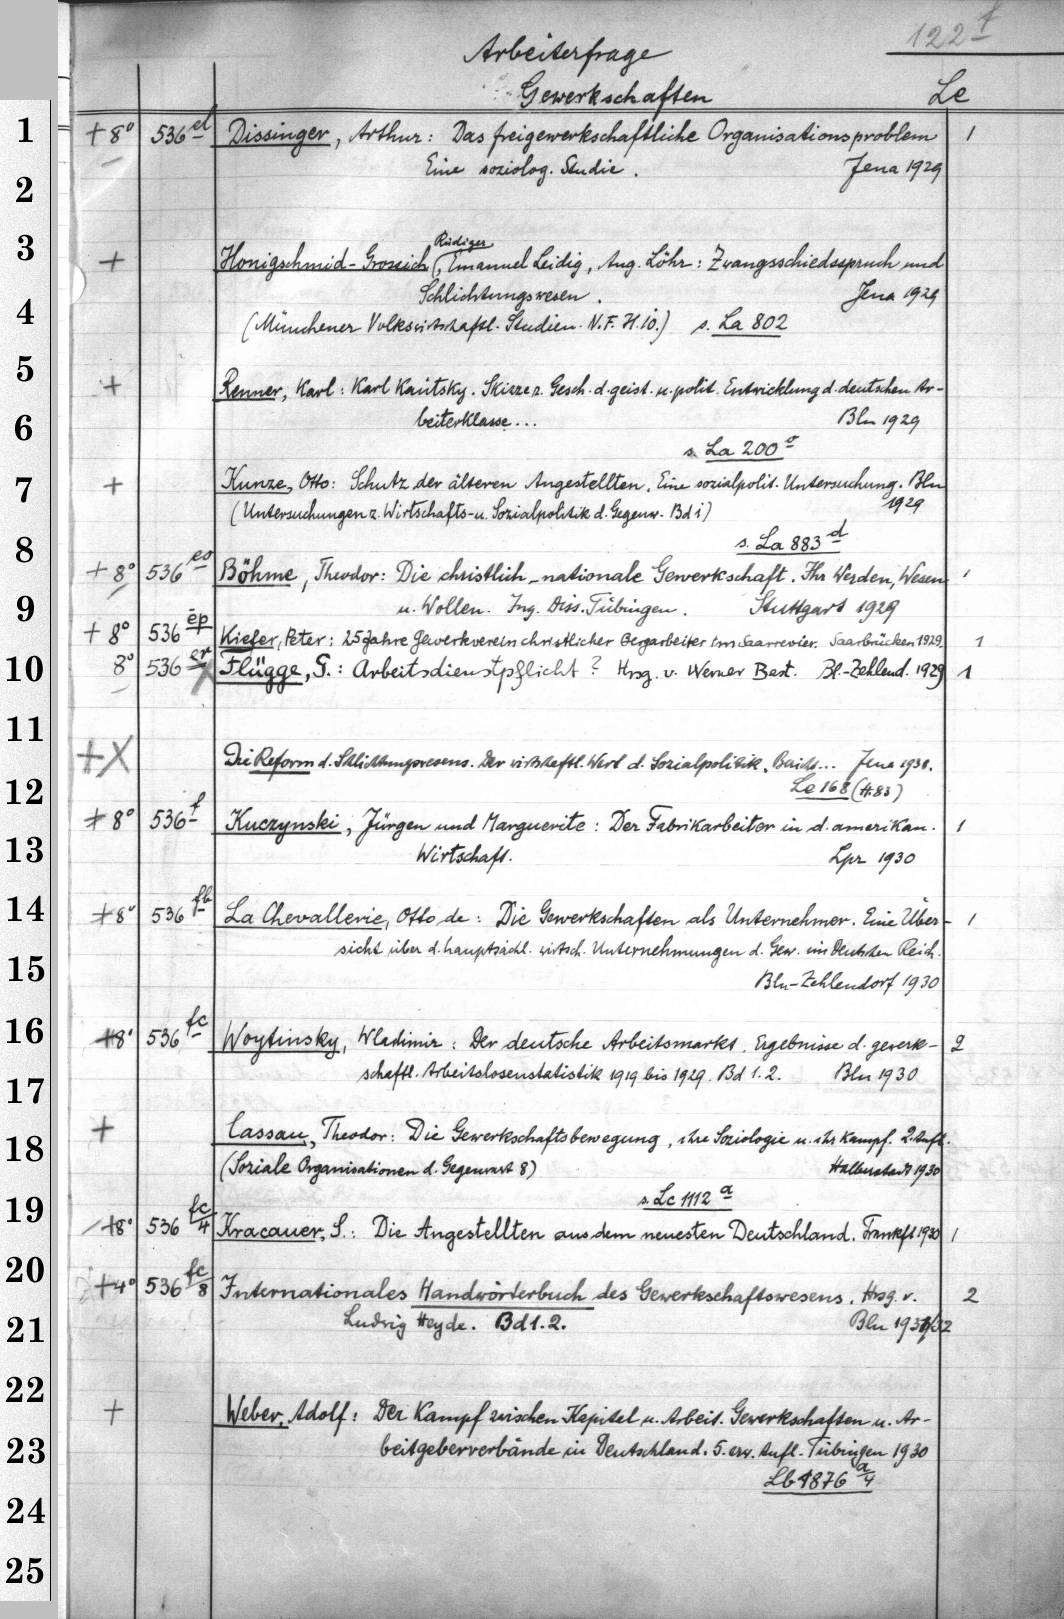 122f
Arbeiterfrage
Gewerkschaften Le
1 + 8° 536 el Dissinger, Arthur: Das freigewerkschaftliche Organisationsproblem 1
2 Eine soziolog. Studie. Jena 1929
Rüdiger
3 + Honigschmid-Grossich, Emanuel Leidig, Aug. Löhr: Zwangsschiedsspruch und
Schlichtungswesen. Jena 1929
4 (Münchener Volkswirtschaftl. Studien. N. F. H. 10.) s. La 802
5 + Renner, Karl: Karl Kautsky. Skizze z. Gesch. d. geist. u. polit. Entwicklung d. deutschen Ar-
6 beiterklasse... Bln 1929
s. La 200
7 + Kunze, Otto: Schutz der älteren Angestellten. Eine sozialpolit. Untersuchung. Bln
(Untersuchungen z. Wirtschafts- u. Sozialpolitik d. Gegenw. Bd 1) 1929
s. La 883 d
8 + 8° 536 eo Böhme, Theodor: Die christlich-nationale Gewerkschaft. Ihr Werden, Wesen 1
9 u. Wollen. Ing. Diss. Tübingen. Stuttgart 1929
+ 8° 536 ep Kiefer, Peter: 25 Jahre Gewerkverein christlicher Bergarbeiter im Saarrevier. Saarbrücken 1929. 1
10 8° 536 er Flügge, G.: Arbeitsdienstpflicht? Hrsg. v. Werner Best. Bl.-Zehlend. 1929 1
11 +X Die Reform d. Schlichtungswesens. Der wirtschaftl. Wert d. Sozialpolitik. ... Jena 1930.
12 Le 168 (H. 83)
+ 8° 536 f Kuczynski, Jürgen und Marguerite: Der Fabrikarbeiter in d. amerikan. 1
13 Wirtschaft. Lpz 1930
14 + 8° 536 fb La Chevallerie, Otto de: Die Gewerkschaften als Unternehmer. Eine Über- 1
15 sicht über d. hauptsächl. wirtsch. Unternehmungen d. Gew. im Deutschen Reich.
Bln-Zehlendorf 1930
16 + 8° 536 fc Woytinsky, Wladimir: Der deutsche Arbeitsmarkt. Ergebnisse d. gewerk- 2
17 schaftl. Arbeitslosenstatistik 1919 bis 1929. Bd 1.2. Bln 1930
+ Cassau, Theodor: Die Gewerkschaftsbewegung, ihre Soziologie u. ihr Kampf. 2. Aufl.
18 (Soziale Organisationen d. Gegenwart 8) Halberstadt 1930
s. Lc 1112 a
19 + 8° 536 fc/4 Kracauer, S.: Die Angestellten aus dem neuesten Deutschland. Frankft 1930 1
20 + 4° 536 fc/8 Internationales Handwörterbuch des Gewerkschaftswesens. Hrsg. v. 2
21 Ludwig Heyde. Bd 1.2. Bln 1931/32
22 + Weber, Adolf: Der Kampf zwischen Kapital u. Arbeit. Gewerkschaften u. Ar-
23 beitgeberverbände in Deutschland. 5. erw. Aufl. Tübingen 1930
Lb 1876 a/4
24
25